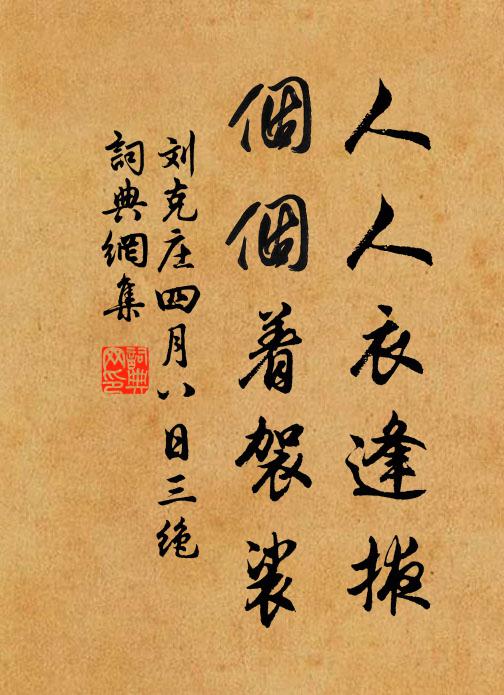 人人衣逢掖
個個着袈裟
刘克庄四月八日三绝
詞典網集
詞典網印